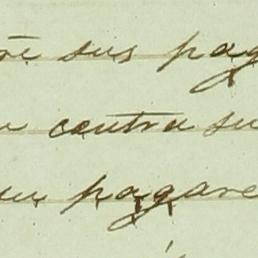 sus pag
contra su
pagare